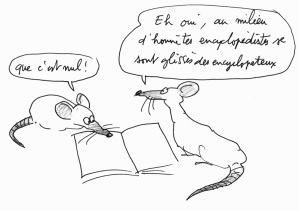 que c'est nul!
Eh oui, au milieu
d'honnêtes encyclopédistes se
sont glissés des encyclopéteux